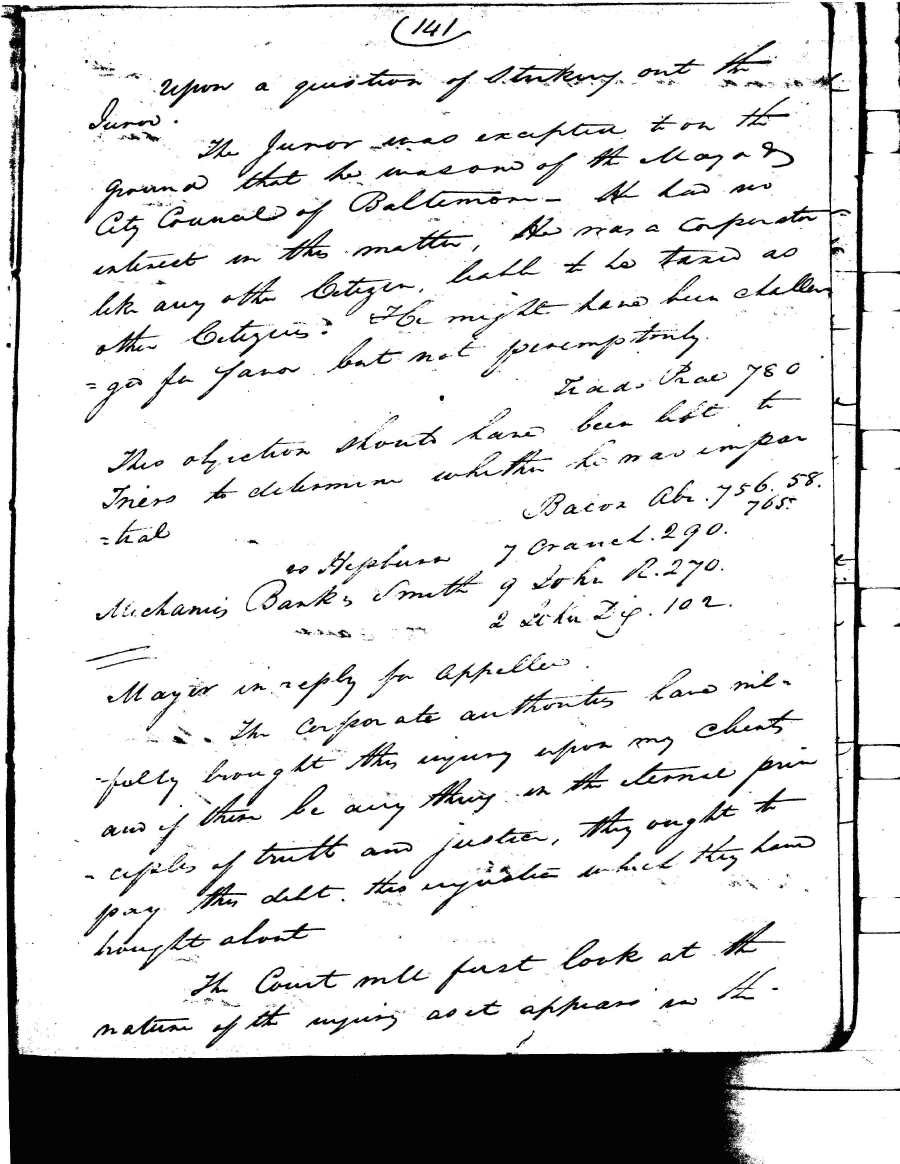 (141)
Upon a question of striking out the
Juror.
The Juror was excepted to on the
ground that he was one of the Mayor &
City Council of Baltimore - He had no
interest in this matter, He was a corporator
like any other Citizen, liable to be taxed as
other Citizens. He might have been challen
=ged for favor but not peremptorily.
Prac 780
This objection should have been left to
Triers to determine whether he was impar
=tial
Bacon Abr. 756. 58.
765.
vs Hepburn 7 Cranch. 290.
Mechanics Bank vs Smith 9 John R. 270.
2 John Dig. 102.
Mayer in reply for Appellee.
The corporate authorities have wil-
-fully brought this injury upon my clients
and if there be any thing in the eternal prin
-ciples of truth and justice, they ought to
pay this debt. this injustice which they have
brought about
The Court will first look at the
nature of the injury as it appears in the